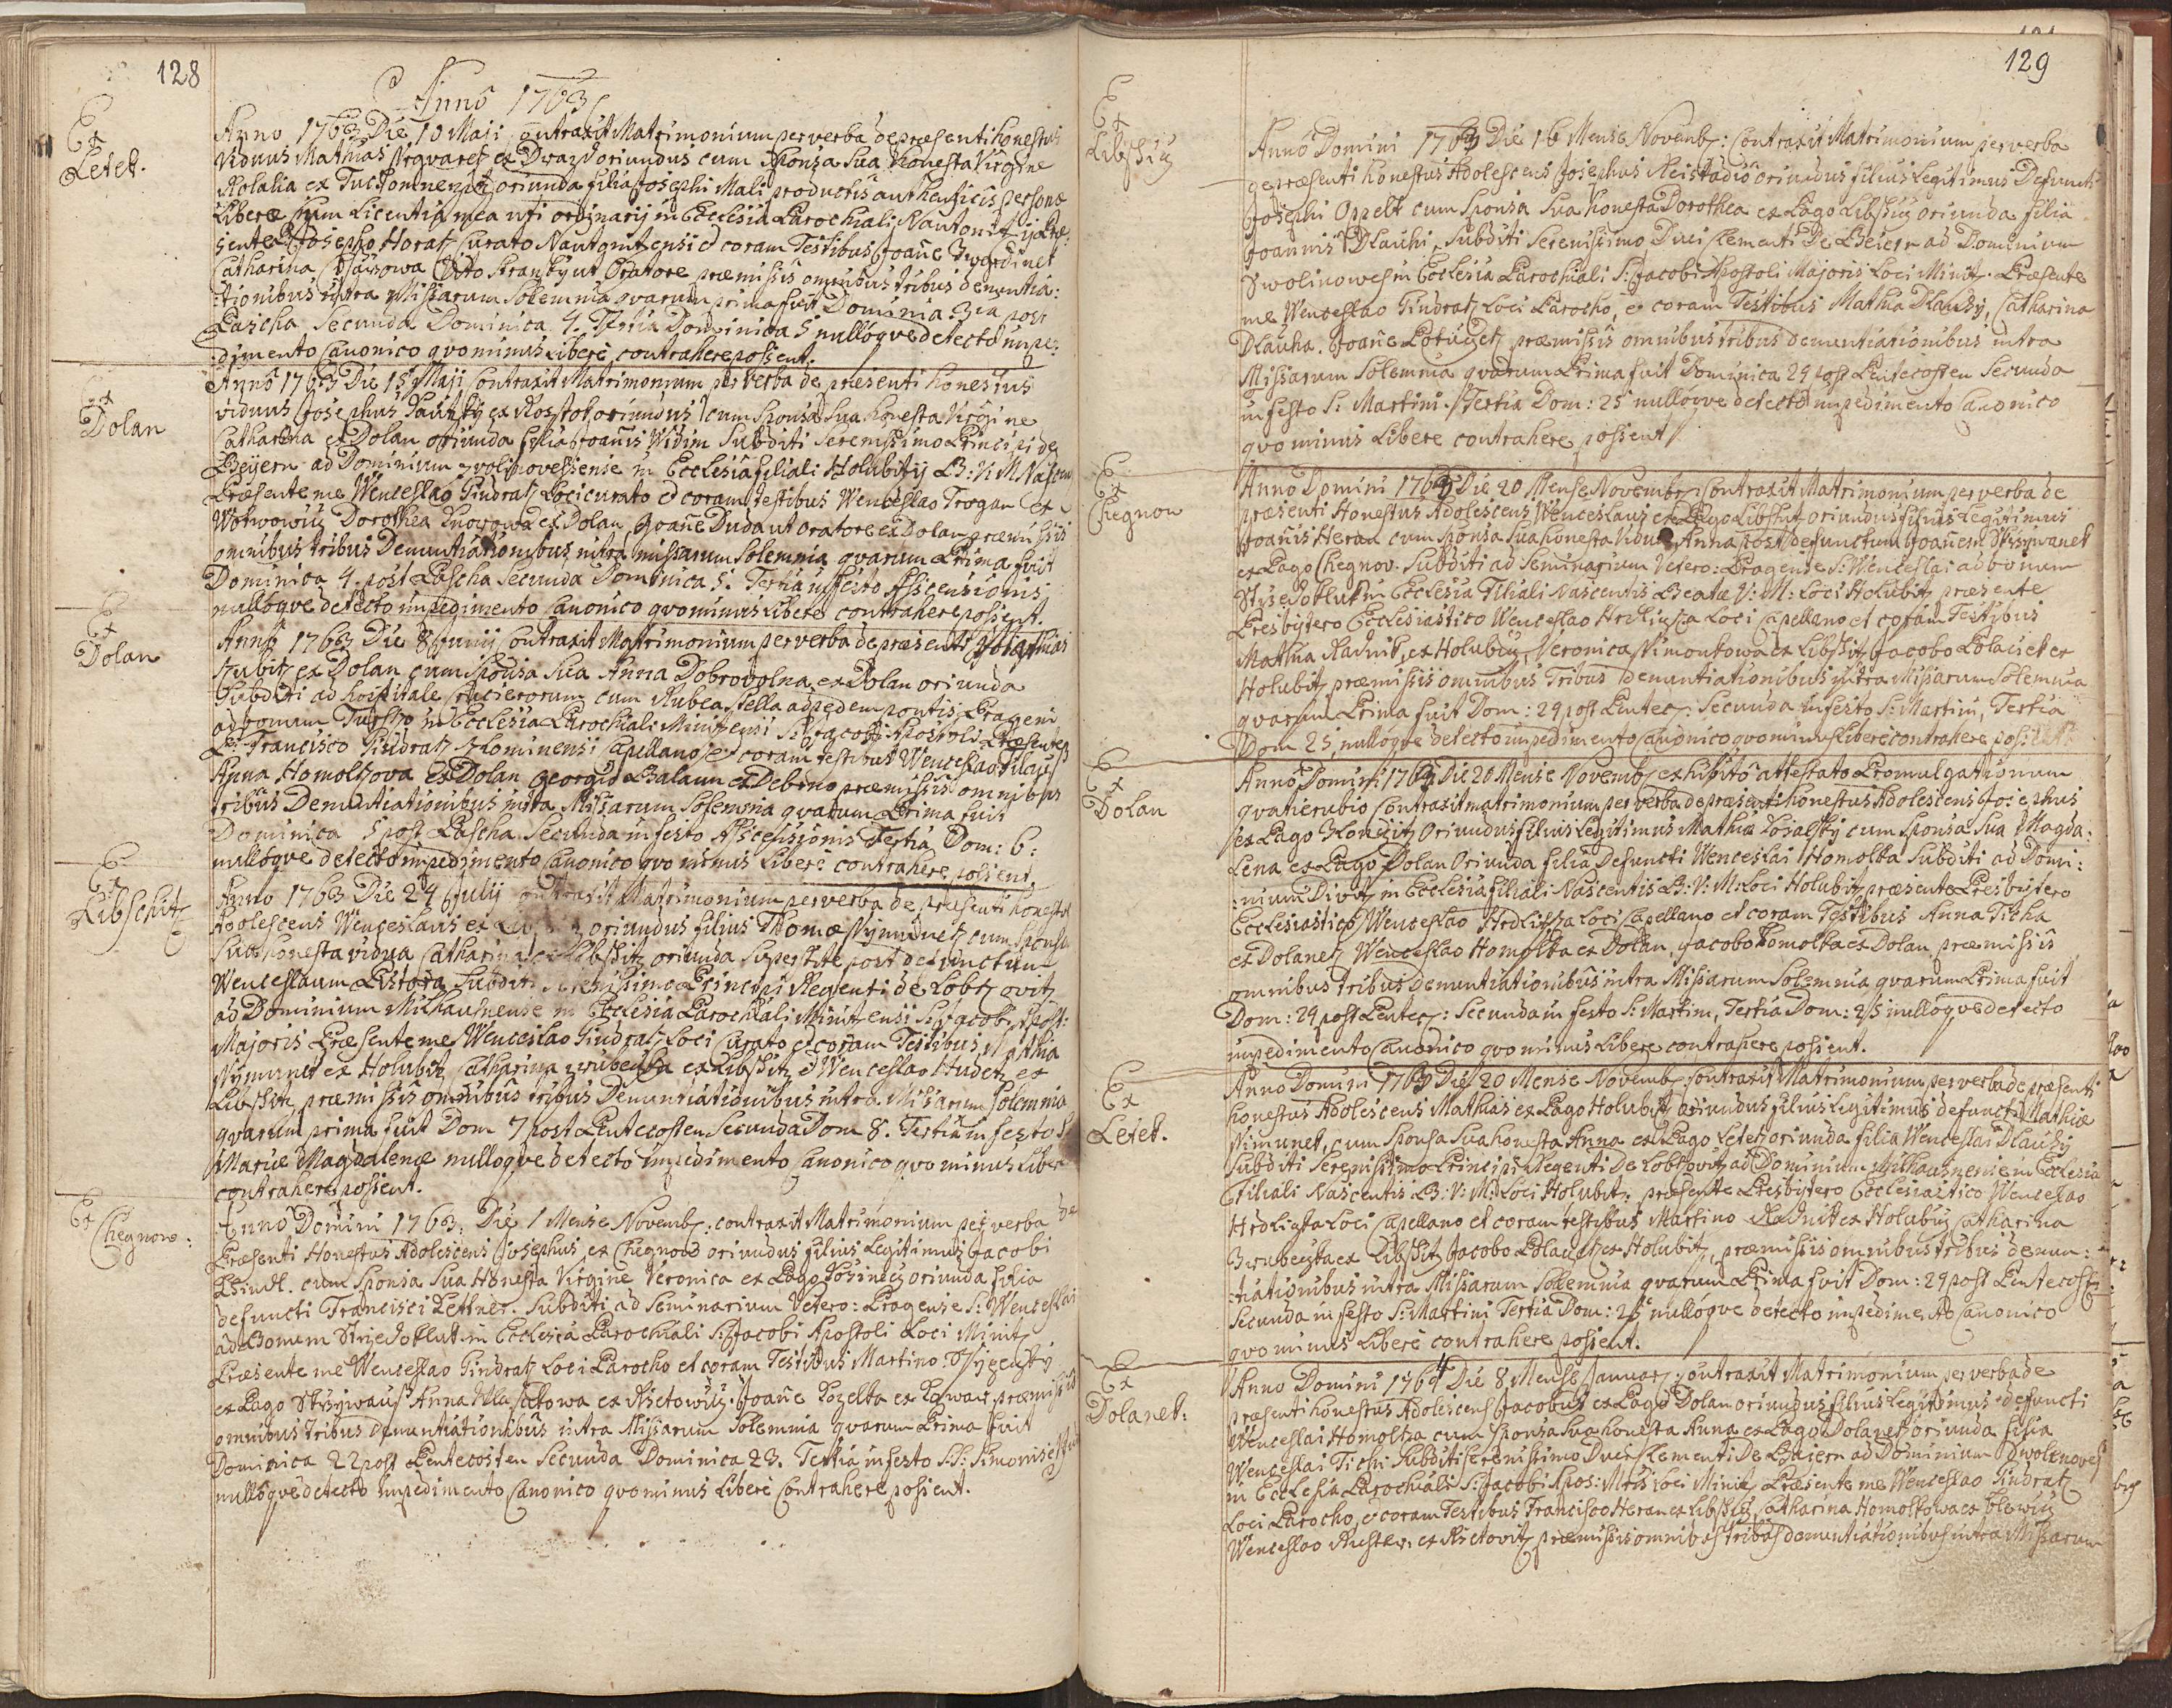 128
Anno 1763
Ex
Letek.
Anno 1763 Die 10 Maji contraxit Matrimonium per verba de præsenti honestus
Viduus Mathias oriundus cum Sponsa Sua honesta Virgine
Rosalia ex oriunda filia Josephi Mali productis authenticis personæ
Liberæ cum Licentia mea uti ordinarij in Ecclesia Parochiali
Josepho Horatz Curato et coram Testibus Joane
Catharina Vito ut Oratore præmissis omnibus tribus denuntia:
:tionibus intra Missarum Solemnia qvarum prima fuit Dominica 3tia post
Pascha Secunda Dominica 4. Tertia Dominica 5 nullóqve detecto impe:
:dimento Canonico qvominus Liberè contrahere possent.
Ex
Dolan
Anno 1763 Die 15 Maji Contraxit Matrimonium per verba de præsenti honestus
viduus Josephus ex oriundus cum Sponsa Sua honesta Virgine
Catharina ex Dolan oriunda filia Joañis Widim Subditi Serenissimo Principi de
Beÿern ad Dominium in Ecclesia filiali Holubitz B: V: M: Nascen
Præsente me Wenceslao Jindratz Loci curato et coram testibus Wenceslao Trogan ex
Dorothea ex Dolan, Joañe Duda ut oratore ex Dolan præmissis
omnibus tribus Denuntiationibus intra missarum Solemnia qvarum Prima fuit
Dominica 4. post Pascha Secunda Dominica 5. Tertia in festo Asscensionis,
nullóqve detecto impedimento Canonico qvominus Liberè contrahere possent.
Ex
Dolan
Anno 1763 Die 8 Junij Contraxit Matrimonium per verba de præsenti Mathias
ex Dolan cum Sponsa Sua Anna Dobrovolna ex Dolan oriunda
Subditi ad hospitale Crucierorum cum Rubea Stella ad pedem pontis Prageni
ad bonum in Ecclesia Parochiali Minitzensi S: Jacobi Apostoli Præsente
P: Francisco Jindratz Capellano et coram testibus Wenceslao
Anna Homoltzova Ex Dolan Georgio Balaun ex Debrno præmissis omnibus
tribus Denuntiationibus intra Missarum Solemnia qvarum Prima fuit
Dominica 5 post Pascha Secunda in festo Asscensionis Tertia Dom: 6:
nullóqve detecto impedimento Canonico qvominus Liberè contrahere possent.
Ex
Libschitz
Anno 1763 Die 24 July contraxit Matrimonium per verba de præsenti honestus
Adolescens Wenceslaus ex oriundus filius Thomæ cum Sponsa
Sua honesta vidua Catharina ex Libssitz oriunda Superstite post defunctum
Wenceslaum Pistora Subditi Serenissimo Principi Regenti de Lobkovitz
ad Dominium Milhausnense in Ecclesia Parochiali Minitzensi S: Jacobi Apost:
Majoris Præsente me Wenceslao Jindratz Loci Curato et coram Testibus Mathia
ex Holubitz Catharina ex Libssitz et Wenceslao Hudetz ex
Libssitz præmissis omnibus tribus Denuntiationibus intra Missarum Solemnia
qvarum prima fuit Dom 7 post Pentecosten Secunda Dom 8. Tertia in festo S
Mariæ Magdalenæ nullóqve detecto impedimento Canonico qvominus Libere
contrahere possent.
Ex
Chegnow:
Anno Domini 1763. Die 1 Mense Novemb. contraxit Matrimonium per verba de
Præsenti Honestus Adolescens Josephus ex Chegnow oriundus filius Legitimus Jacobi
cum Sponsa Sua Honesta Virgine Veronica ex Pago oriunda filia
defuncti Francisci Subditi ad Seminarium Vetero: Pragense S: Wenceslai
ad Bonum in Ecclesia Parochiali S: Jacobi Apostoli Loci Minitz
Præsente me Wenceslao Jindratz Loci Parocho et coram Testibus Martino
ex Pago Anna ex Joañe Kozelka ex præmissis
omnibus tribus denuntiationibus intra Missarum Solemnia qvarum Prima fuit
Dominica 22 post Pentecosten Secunda Dominica 23. Tertia in festo SS: Simonis et
nullóqve detecto Impedimento Canonico qvominus Liberè Contrahere possent.
129
Ex
Libssitz
Anno Domini 1763 Die 16 Mense Novemb: Contraxit Matrimonium per verba
de præsenti honestus Adolescens Josephus oriundus filius Legitimus Defuncti
Josephi Oppelt cum Sponsa Sua honesta Dorothea ex Pago Libssitz oriunda filia
Joannis Dlauhi Subditi Serenissimo Duci Clementi De Beiern ad Dominium
in Ecclesia Parochiali S: Jacobi Apostoli Majoris Loci Minitz. Præsente
me Wenceslao Jindratz Loci Parocho, et coram Testibus Mathia Dlauhy, Catharina
Dlauha. Joañe præmissis omnibus tribus denuntiationibus intra
Missarum Solemnia qvarum Prima fuit Dominica 24 post Pentecosten Secunda
in festo S: Martini. Tertia Dom: 25 nullóqve detecto impedimento Canonico
qvominus Libere contrahere possent
Ex
Chegnow
Anno Domini 1763 Die 20 Mense Novemb: Contraxit Matrimonium per verba de
præsenti Honestus Adolescens Wenceslaus ex Pago Libssitz oriundus filius Legitimus
Joañis Heran cum Sponsa Sua honesta Vidua Anna post defunctum Joañem
ex Pago Chegnov. Subditi ad Seminarium Vetero: Pragense S: Wenceslai ad bonum
in Ecclesia Filiali Nascentis Beatæ V: M: Loci Holubitz præsente
Presbytero Ecclesiastico Wenceslao Hrdligka Loci Capellano et coram Testibus
Mathia Radnik, ex Holubitz, Veronica ex Libssitz Jacobo ex
Holubitz præmissis omnibus Tribus denuntiationibus intra Missarum Solemnia
qvarum Prima fuit Dom: 24 post Pentec: Secunda in festo S: Martini, Tertia
Dom 25, nullóqve detecto impedimento Canonico qvominus Liberè contrahere possent
Ex
Dolan
Anno Domini 1763 Die 20 Mense Novemb, exhibitô attestato Promulgationum
contraxit matrimonium per verba de præsenti honestus Adolescens Josephus
ex Pago Oriundus filius Legitimus Mathiæ cum Sponsa Sua Magda:
Lena ex Pago Dolan Oriunda filia Defuncti Wenceslai Homolka Subditi ad Domi:
:nium in Ecclesia filiali Nascentis B: V: M: Loci Holubitz præsente Presbytero
Ecclesiastico Wenceslao Hrdligka Loci Capellano et coram Testibus Anna Ticha
ex Dolanek, Wenceslao Homolka ex Dolan, Jacobo Homolka ex Dolan præmissis
omnibus tribus denuntiationibus intra Missarum Solemnia qvarum Prima fuit
Dom: 24 post Pentec: Secunda in festo S: Martini, Tertia Dom: 25 nullóqve detecto
impedimento Canonico qvominus Libere contrahere possent.
Ex
Letek.
Anno Domini 1763 Die 20 Mense Novemb. Contraxit Matrimonium per verba de præsenti
honestus Adolescens Mathias ex Pago Holubitz oriundus filius Legitimus defuncti Mathiæ
cum Sponsa Sua honesta Anna ex Pago Letek oriunda filia Wenceslai Dlauhy
Subditi Serenissimo Principi Regenti De Lobkovitz ad Dominium Milhausnense in Ecclesia
Filiali Nascentis B: V: M: Loci Holubitz. præsente Presbytero Ecclesiastico Wenceslao
Hrdligka Loci Capellano et coram testibus Martino Radnik ex Holubitz Catharina
ex Libssitz Jacobo ex Holubitz, præmissis omnibus tribus denun:
:tiationibus intra Missarum Solemnia qvarum Prima fuit Dom: 24 post Pentecost:
Secunda in festo S: Martini Tertia Dom: 25 nullóqve detecto impedimento Canonico
qvominus Liberè contrahere possent.
Ex
Dolanek:
Anno Domini 1764 Die 8 Mense Januar: contraxit Matrimonium per verba de
præsenti honestus Adolescens Jacobus ex Pago Dolan oriundus filius Legitimus defuncti
Wenceslai Homolka cum Sponsa Sua honesta Anna ex Pago Dolanek oriunda filia
Wenceslai Tichi Subditi Serenissimo Duci Clementi De Baiern ad Dominium
in Ecclesia Parochiali S: Jacobi Apos: Loci Minitz Præsente me Wenceslao Jindratz
Loci Parocho, et coram Testibus Francisco Heran ex Libssitz, Catharina Homolkowa ex
Wenceslao ex præmissis omnibus tribus denuntiationibus intra Missarum